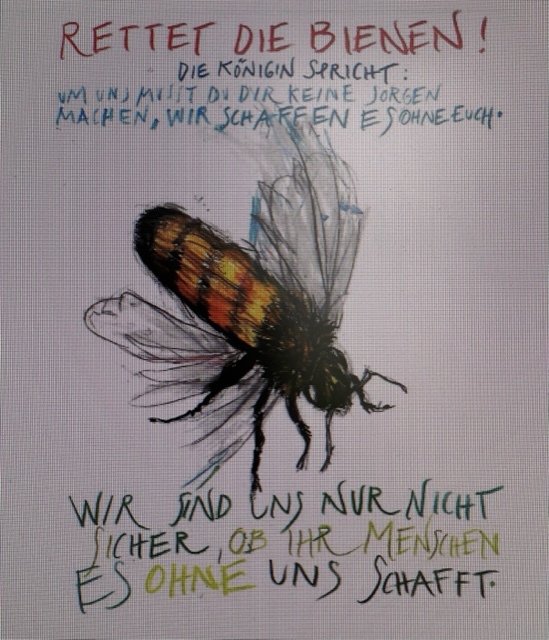 RETTET DIE BIENEN!
DIE KÖNIGIN SPRICHT:
UM UNS MUSST DU DIR KEINE SORGEN
MACHEN, WIR SCHAFFEN ES OHNE EUCH.
WIR SIND UNS NUR NICHT
SICHER, OB IHR MENSCHEN
ES OHNE UNS SCHAFFT.